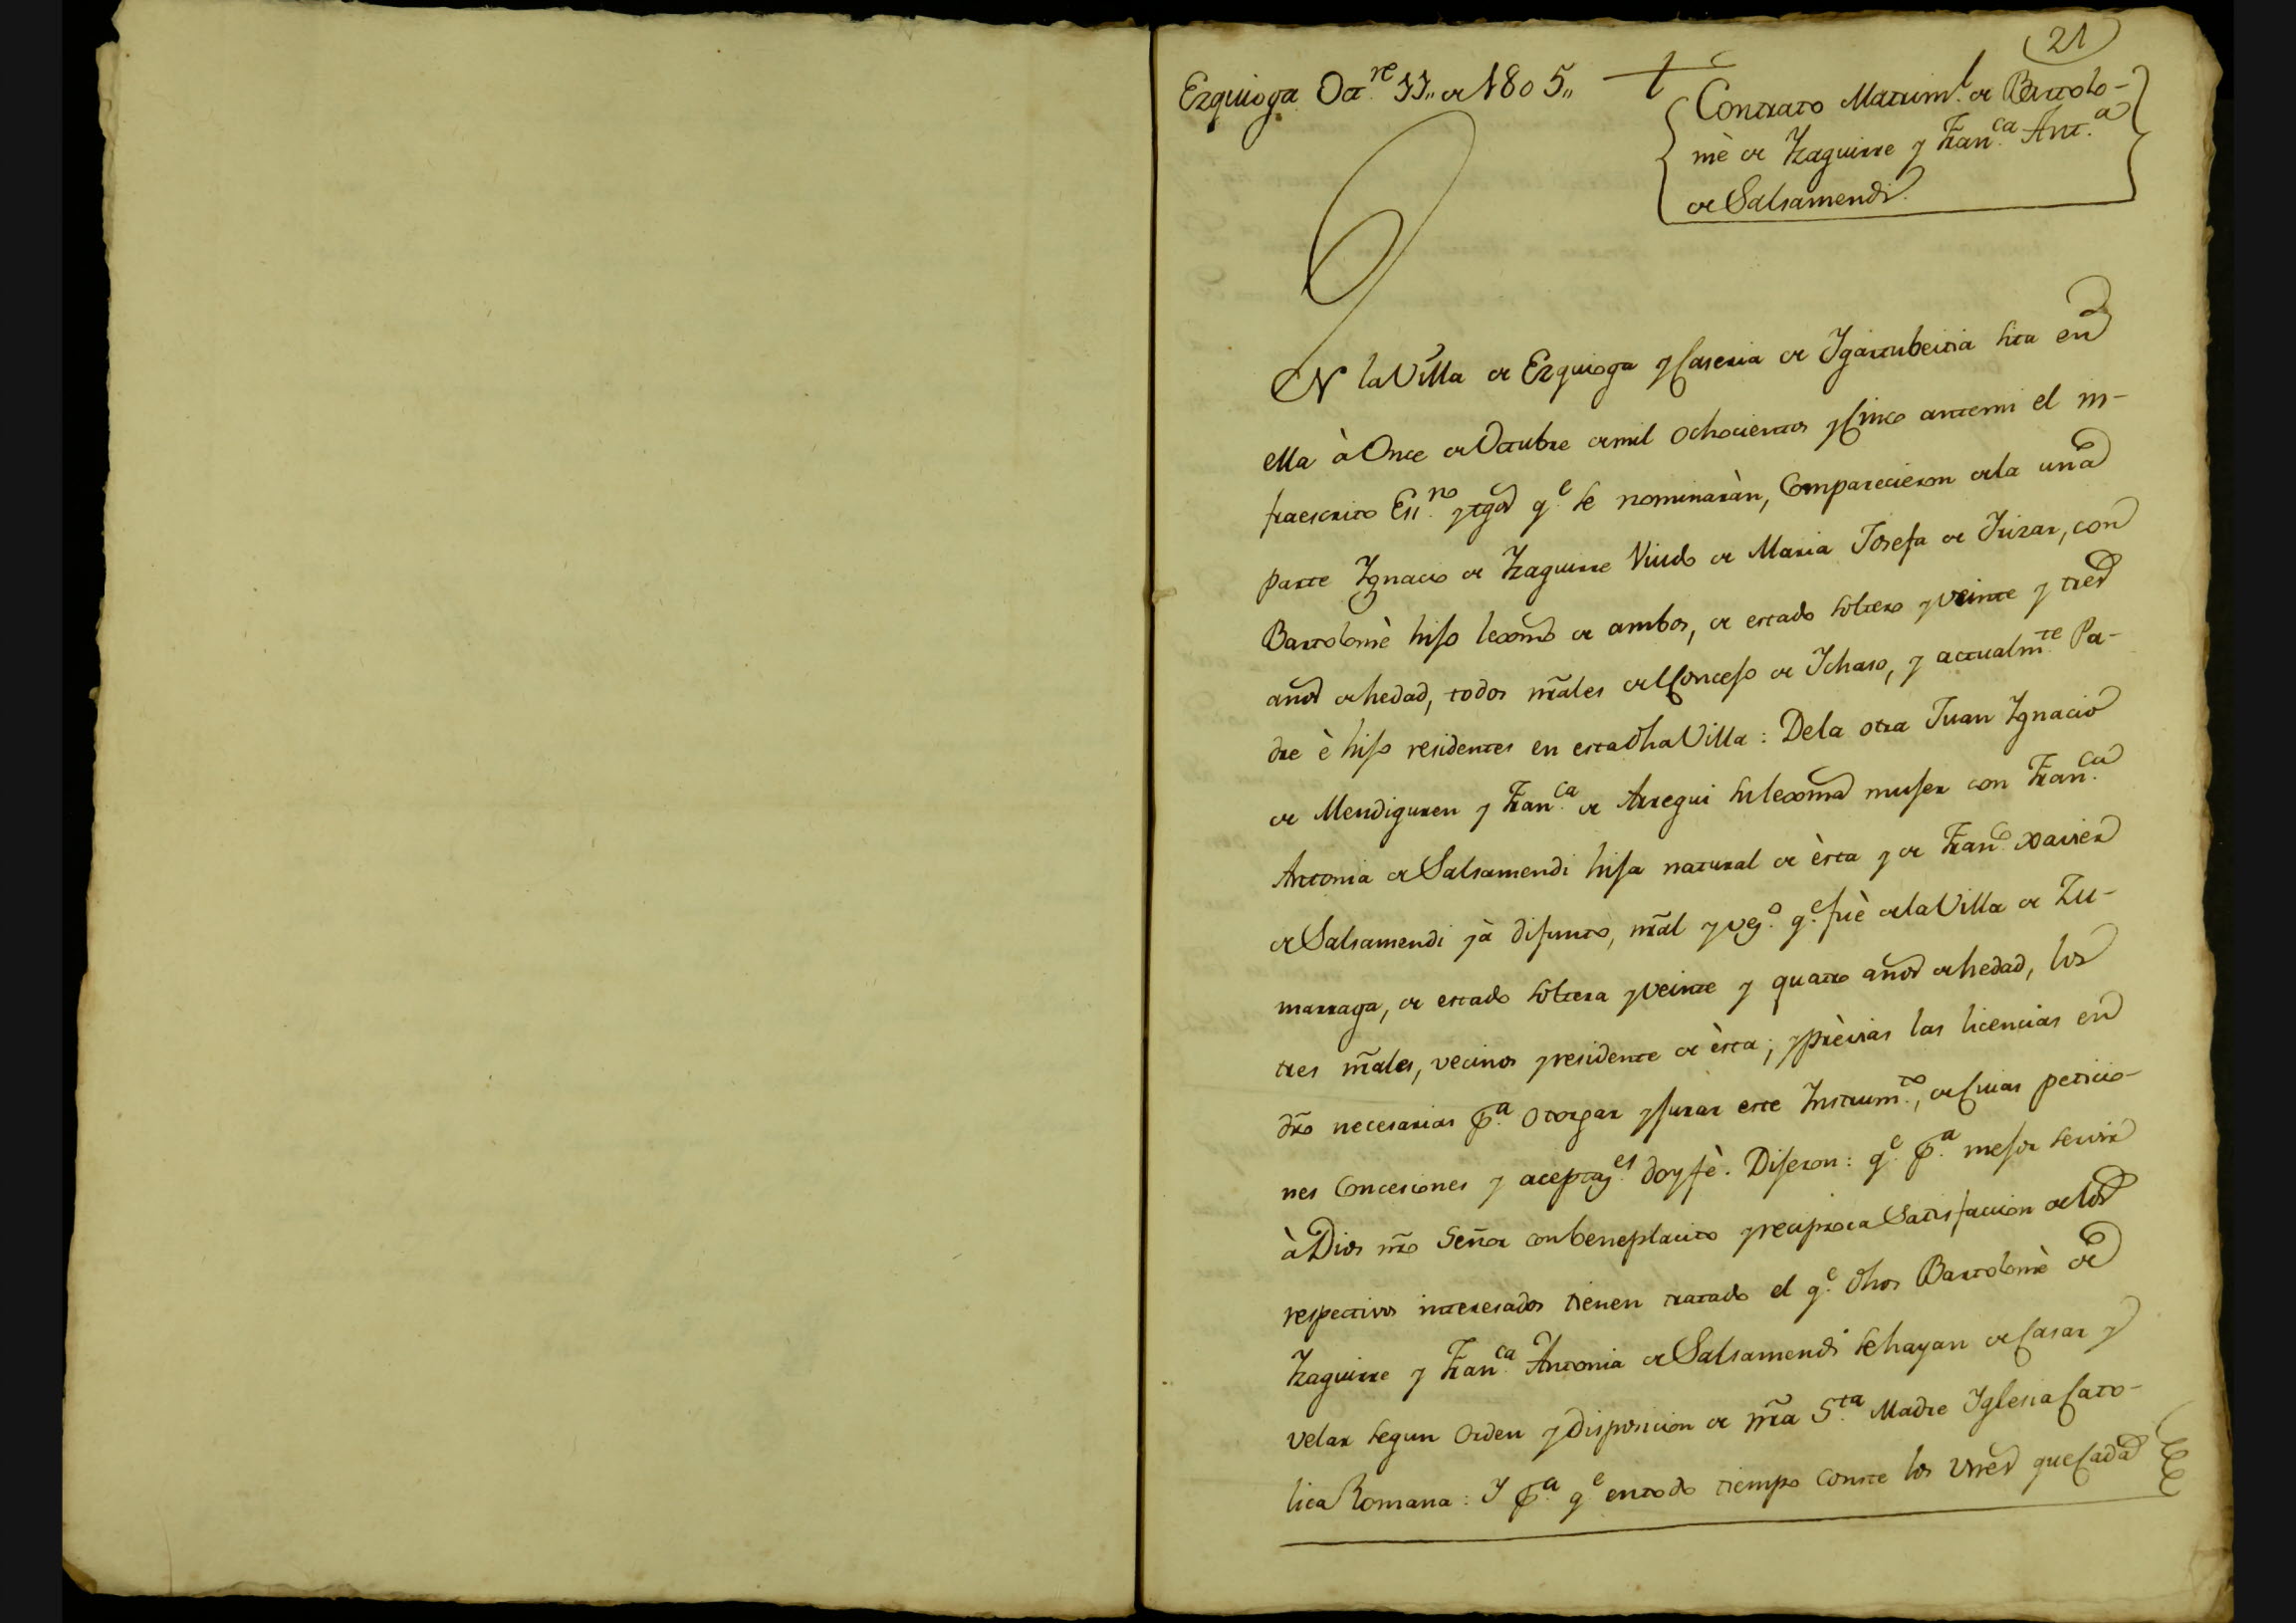 21
Ezquioga Oct.re 11,, de 1805,,
Contrato Matrim.l de Bartolo-
mè de Yzaguirre y Fran.ca Ant.a
de Salsamendi.
EN la Villa de Ezquioga y Caseria de Ygartubeitia sita en
ella à Once de Octubre de mil ochocientos y Cinco antemi el in-
fraescrito Es.no y tgos q.e se nominaràn, Comparecieron de la una
parte Ygnacio de Yzaguirre Viudo de Maria Josefa de Irizar, con
Bartolomè hijo lexmo de ambos, de estado soltero y veinte y tres
años de hedad, todos nrales del Concejo de Ychaso, y actualm.te Pa-
dre è hijo residentes en esta dha Villa: Dela otra Juan Ygnacio
de Mendiguren y Fran.ca de Arregui su lexma mujer con Fran.ca
Antonia de Salsamendi hija natural de èsta y de Fran.co Xavier
de Salsamendi yà difunto, nral y vez.o q.e fuè de la Villa de Zu-
marraga, de estado soltera y veinte y quatro años de hedad, los
tres nrales, vecinos y residente de èsta; y prèvias las licencias en
dro necesarias p.a otorgar y jurar este Instrum.to, de Cuias peticio-
nes Concesiones y aceptaz.es doy fè. Dijeron: q.e p.a mejor servir
à Dios nro Señor con beneplacito y reciproca Satisfaccion de los
respectivos interesados tienen tratado el q.e dhos Bartolomè de
Yzaguirre y Fran.ca Antonia de Salsamendi se hayan de Casar y
velar segun orden y disposicion de nra S.ta Madre Yglesia Cato-
lica Romana: Y p.a q.e en todo tiempo conste los vnes que Cada